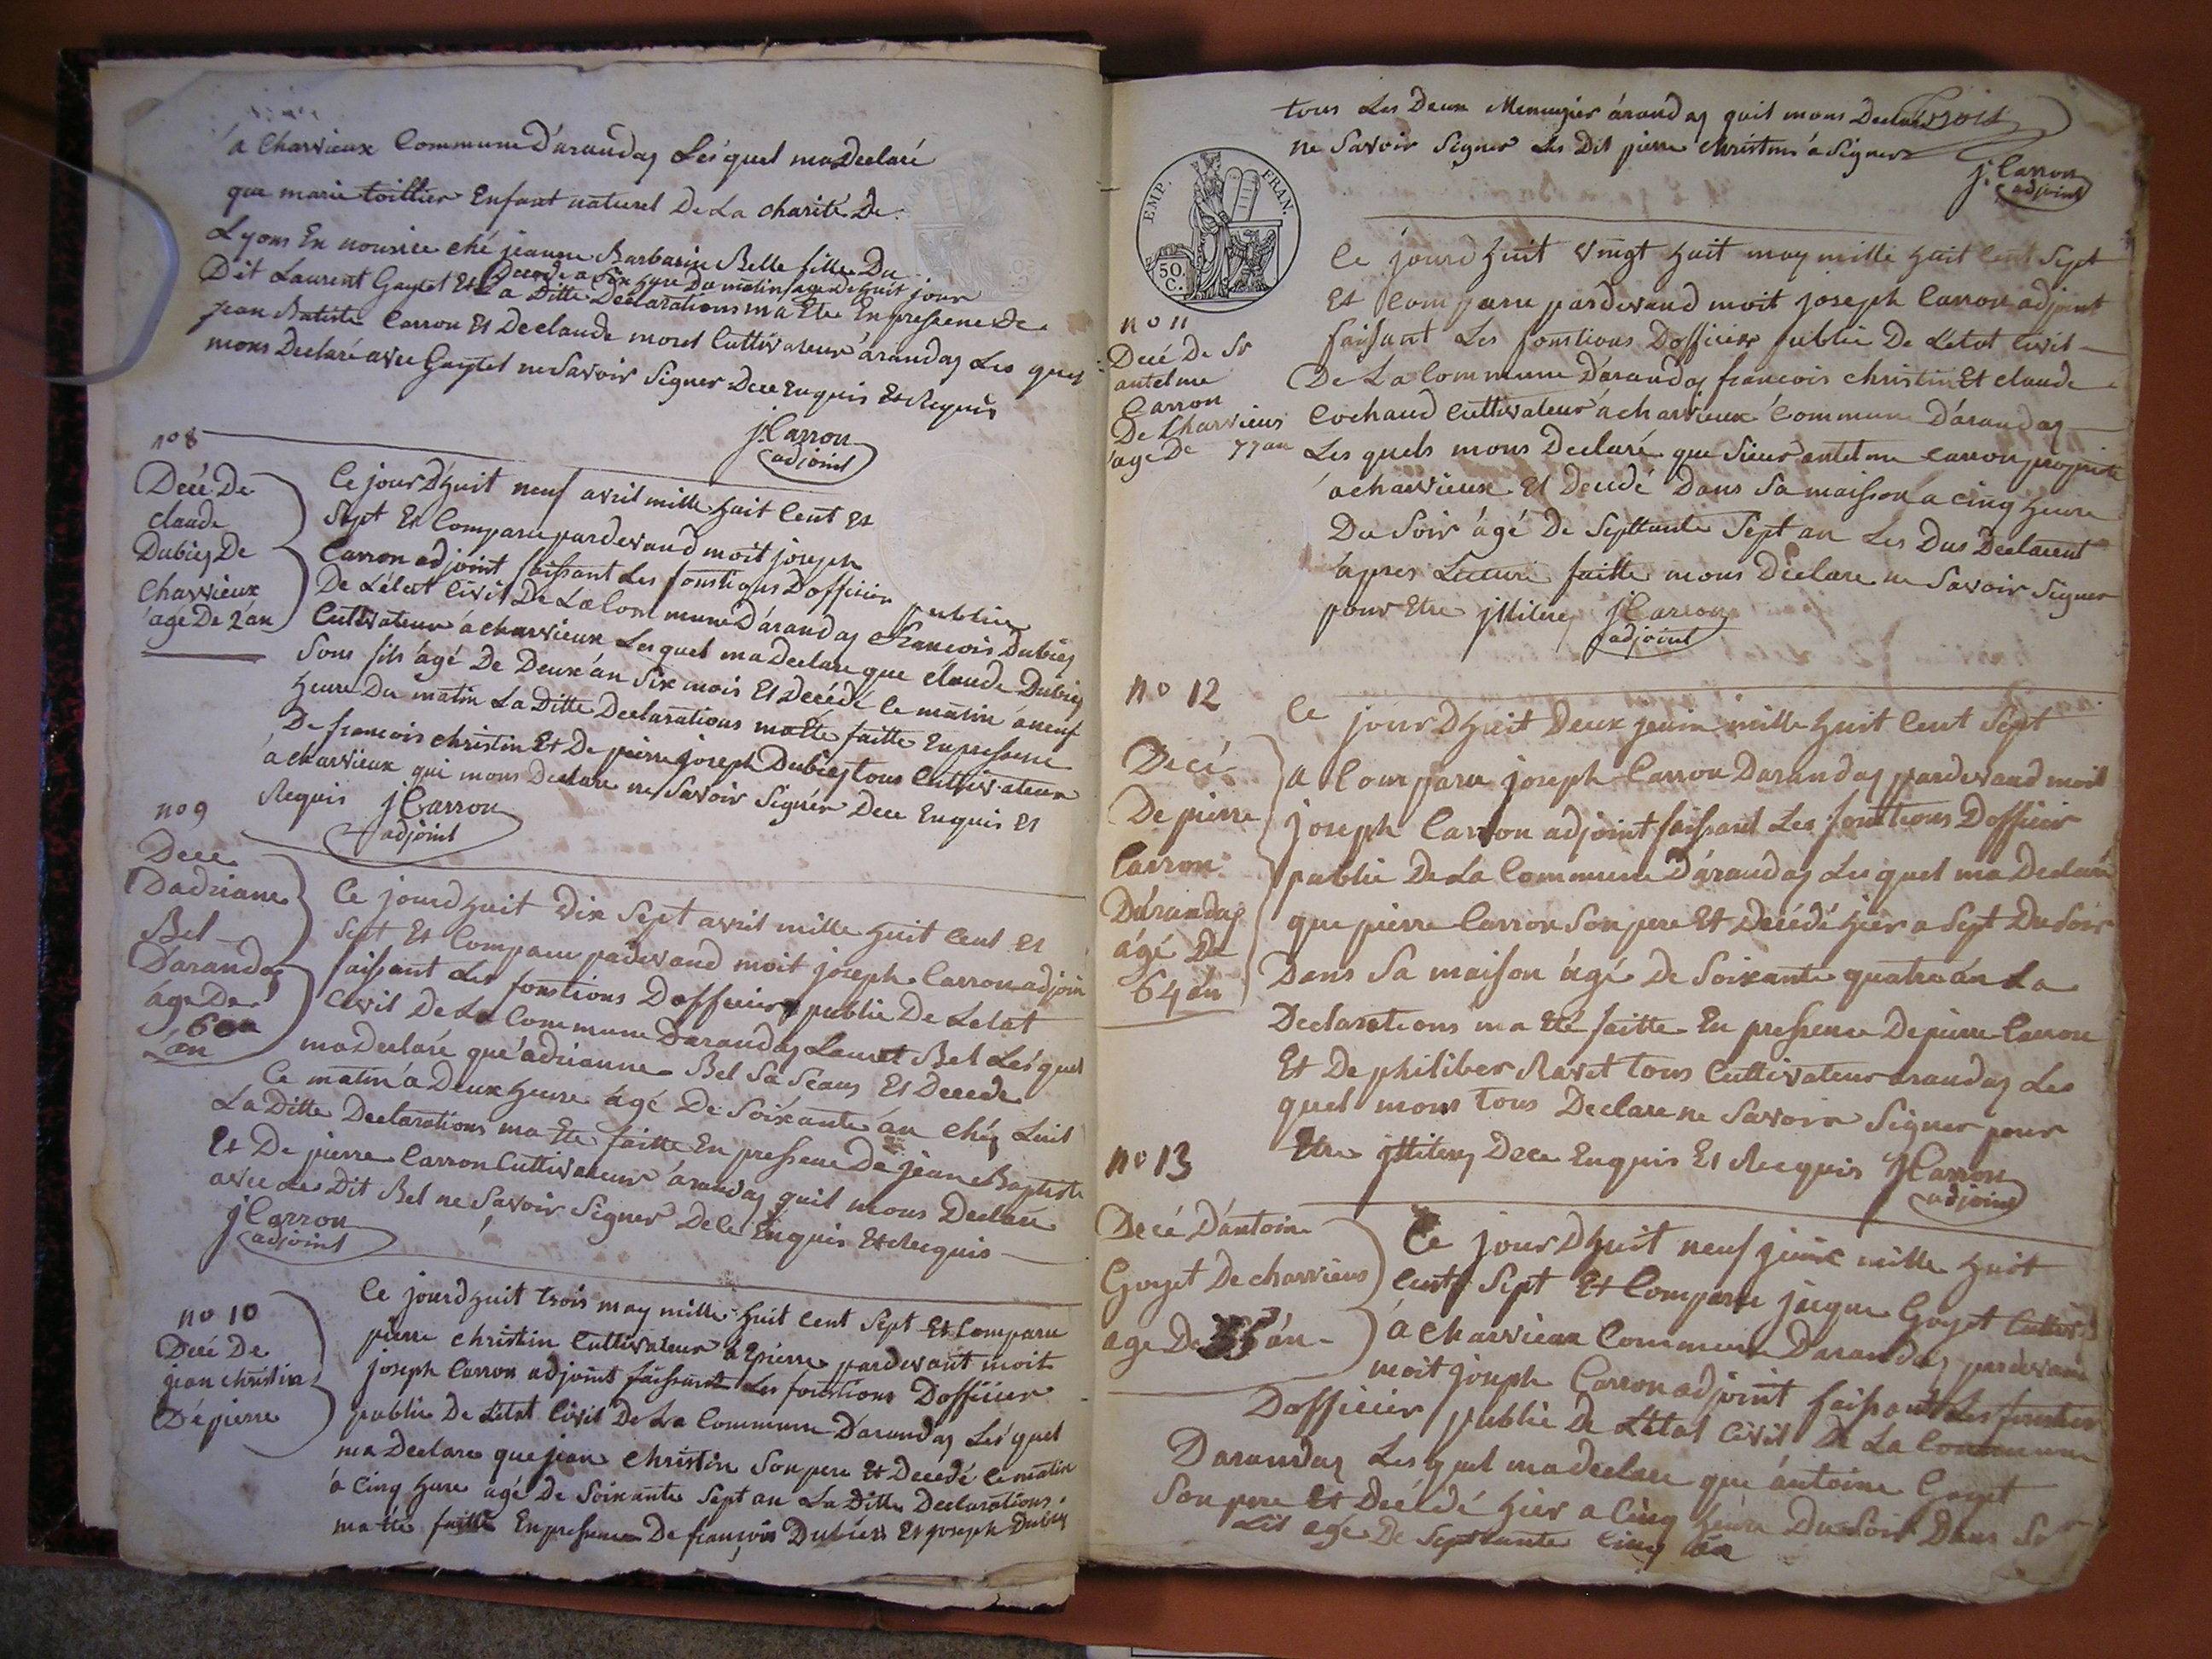 à Charvieux Commune D'arandas Les'quel ma Declaré
que marie toillier Enfant naturel De La charité De
Lyons En nourice ché jeanne Barbarin Belle fille Du
Decede a Six hure Du matin age De huit jour
Dit Laurent Gaytet Et La Ditte Declarations ma Ete En pressene De
jean Batiste Carron Et De claude morel Cultivateur a'randas Les quel
mons Declaré avec Gaytet ne Savoir Signer Dece Enquis Et Requis
j. Carron
adjoint
no 8
Decé De
claude
Dubiez De
Charvieux
age De 2 an
Ce jour D'huit neuf avril mille huit Cent Et
Sept Et Comparu pardevand moit joseph
Carron adjoint faissant Les fonstions D'officier publie
De L'état Civil De La Commune D'arandas francois Dubiez
Cultivateur à charvieux Lesquel ma Declare que claude Dubiez
Sons fils àgé De Deux an Six mois Et Decédé Ce matin à neuf
heure Du matin La Ditte Declarations ma Eté faitte En pressene
De francois christin Et De pierre joseph Dubiez tous Cultivateur
à charvieux qui mons Declare ne Savoir Signer Dece Enquis Et
Requis j Carron
adjoint
no 9
Dece
D'adriane
Bel
D'arandas
âge De
60
an
Ce jourd huit Dix Sept avril mille huit Cent Et
Sept Et Comparu padevand moit joseph Carron adjoin
faissant Les fonstions D'officier publie De L'etat
Civil De La Commune D'arandas Lauret Bel Les'quel
ma Declaré qu'adrianne Bel Sa Seaus Et Decede
Ce matin à Deux heure àgé De Soixante àn chéz Luit
La Ditte Declarations ma Ete faitte En pressene De jean Baptiste
Et De pierre Carron Cultivateur à'randas quil mons Declaré
avec Le Dit Bel ne Savoir Signer De Ce Enquis Et Requis
j Carron
adjoint
no 10
Decé De
jean christin
D'épierre
Ce jourd huit trois may mille huit Cent Sept Et Comparu
pierre christin Cultivateur a Epierre pardevant moit
joseph Carron adjoint faissant Les fonstions D'officier
publie De L'état Civil De La Commune D'arandas Les'quel
ma Declare que jean christin Son pere Et Decédé Ce matin
à Cinq hure agé De Soixante Sept an La Ditte Declarations
ma été faitte En pressene De françois Dubiers Et joseph Dubiez
tous Les Deux Menuzier àrandas quil mons Declaré
ne Savoir Signer Les Dit pierre christin à Signer
j. Carron
adjoint
EMP. FRAN.
50.
C.
no 11
Decé De Sr
antelme
Carron
De Charvieux
age De 77 an
Ce jourd huit vingt huit may mille huit Cent Sept
Et Comparu pardevand moit joseph Carron adjoint
faissant Les fonstions D'officier publie De L'etat Civil
De La Commune D'arandas francois christin Et claude
Cochaud Cultivateur à charvieux Commune D'arandas
Les quels mons Declaré que Sieur antelme Carron
à charvieux Et Decedé Dans Sa maison a cinq heure
Du Soir àgé De Septtante Sept an Les Dus Declarent
àpres Lecture faitte mons Declare ne Savoir Signer
pour Etre jllitere j Carron
adjoint
no 12
Decé
De pierre
Carron
D'arandas
âgé De
64 an
Ce jour D huit Deux jeuin mille huit Cent Sept
a Comparu joseph Carron Darandas pardevand moit
joseph Carron adjoint faissant Les fonstions D'officier
publie De La Commune D'arandas Les quel ma Declaré
que pierre Carron Son pere Et Decédé hier a Sept Du Soir
Dans Sa maison àgé De Soixante quatre àn La
Declarations ma Eté faitte En pressence De pierre Carron
Et De philiber Ravet tous Cultivateur arandas Les
quel mons tous Declare ne Savoir Signer pour
Etre jllitere Dece Enquis Et Recquis j Carron
adjoint
no 13
Decé D'antoine
Goyet De charvieux
age De an
Ce jour D huit neuf juin mille huit
Cent Sept Et Comparu jacque Goyet
à charvieux Commune Darandas pardevand
moit joseph Carron adjoint faissant Les
D'officier publie De L'état Civil De La Commune
Darandas Lesquel ma declare que àntoine Goyet
Son pere Et Decédé hier a Cinq heure Du Soir Dans
Lit agé De Septtante Cinq àn